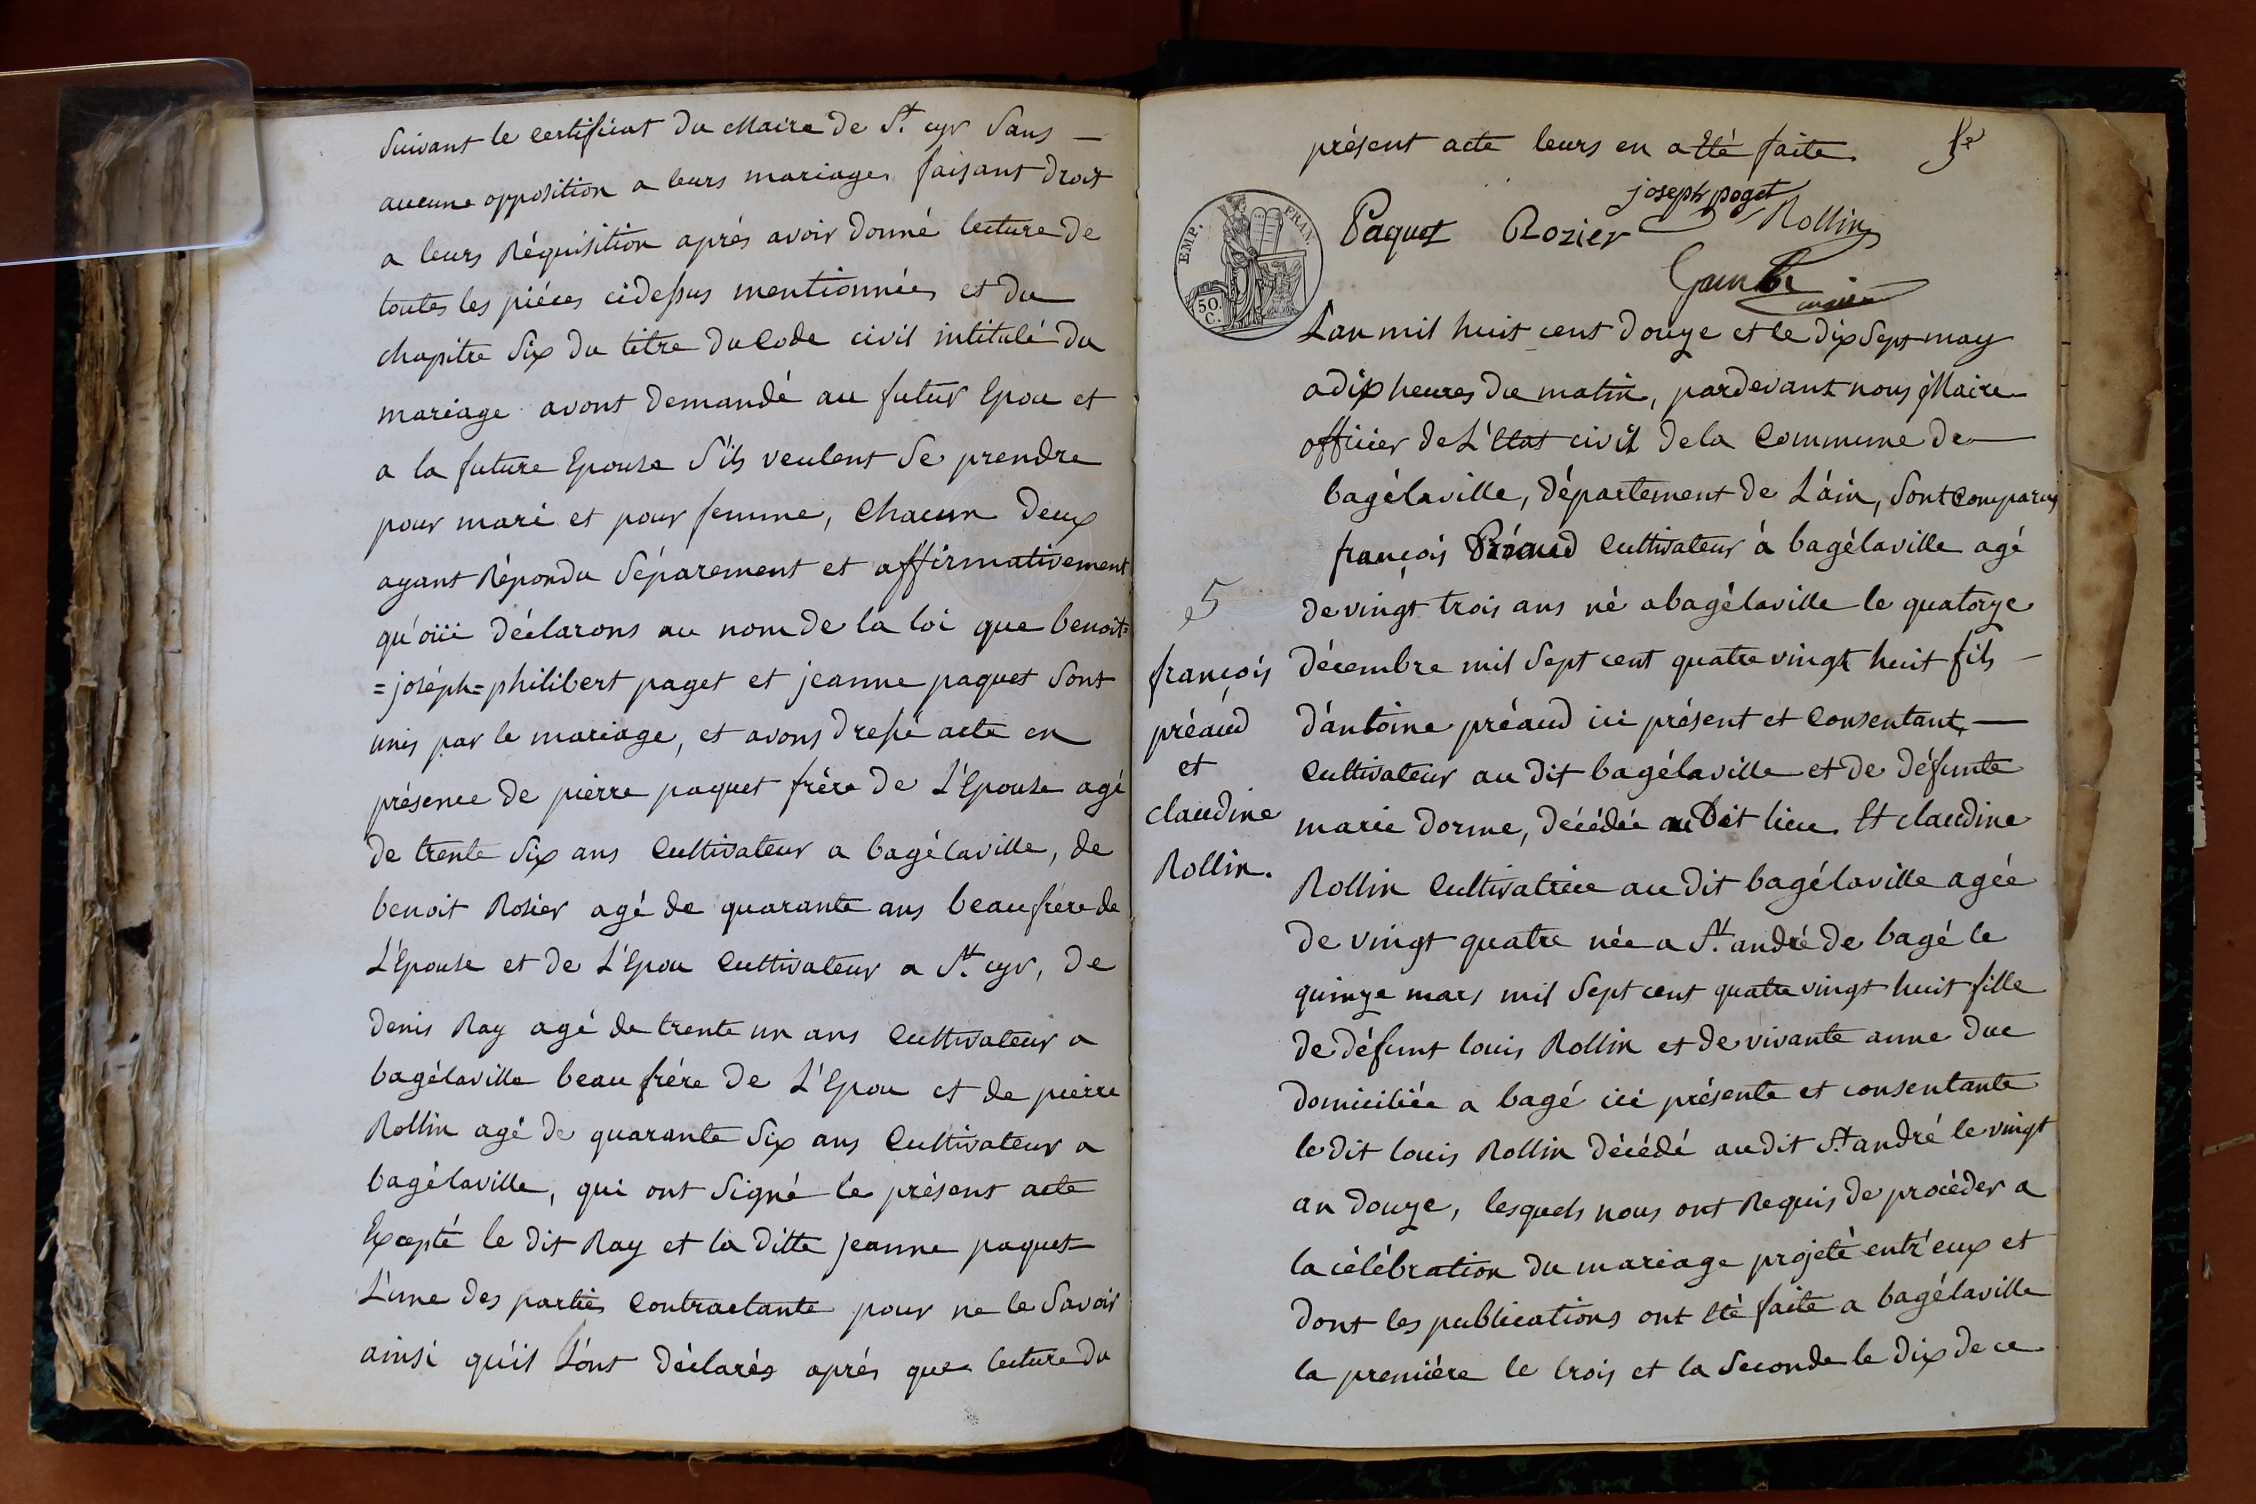 Suivant le certificat du Maire de St. cyr Sans —
aucune opposition a leurs mariage, faisant droit
a leurs Réquisition aprés avoir donné lecture de
toutes les piéces cidessus mentionnées et du
chapitre Six du titre du Code civil intitulé du
mariage avont demandé au futur Epou et
a la future Epouse S'ils veulent Se prendre
pour mari et pour femme, Chacun deux
ayant Répondu Séparement et affirmativement
qu'oüi déclarons au nom de la loi que benoit=
=joséph=philibert paget et jeanne paquet Sont
unis par le mariage, et avons dressé acte en
présence de pierre paquet frére de L'Epouse agé
de trente Six ans Cultivateur a bagélaville, de
benoit Rosier agé de quarante ans beaufrére de
L'Epouse et de L'Epou Cultivateur a St. cyr, de
denis Ray agé de trente un ans Cultivateur a
bagélaville beau frére de L'Epou et de pierre
Rollin agé de quarante Six ans Cultivateur a
bagélaville, qui ont Signé le présent acte
Excepté le dit Ray et la ditte jeanne paquet
L'une des parties Contractante pour ne le Savoir
ainsi qu'il L'ont déclarés aprés que lecture du
présent acte leurs en a été faite.
joseph paget
Paquet Rozier Rollin
maire
EMP. FRAN.
50 C.
Lan mil huit cent douze et le dix Sept may
a dix heures du matin, pardevant nous Maire
officier de L'Etat civil de la Commune de —
bagélaville, département de L'ain, Sont Comparus
françois Préaud Cultivateur à bagélaville agé
de vingt trois ans né a bagélaville le quatorze
décembre mil Sept cent quatre vingt huit fils —
d'antoine préaud ici présent et Consentant, —
Cultivateur au dit bagélaville et de défunte
marie dorme, décédée au Dit lieu Et claudine
Rollin Cultivatrice au dit bagélaville agée
de vingt quatre née a St. andré de bagé le
quinze mars mil Sept cent quatre vingt huit fille
de défunt louis Rollin et de vivante anne duc
domiciliée a bagé ici présente et consentante
le dit louis Rollin décédé au dit St. andré le vingt
an douze, lesquels nous ont Requis de procéder a
la célébration du mariage projeté entr'eux et
dont les publications ont été faite a bagélaville
la premiére le trois et la Seconde le dix de ce
5
françois
préaud
et
claudine
Rollin.